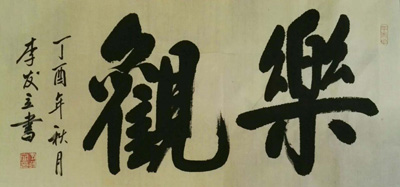 樂觀
丁酉年秋月
李发立書